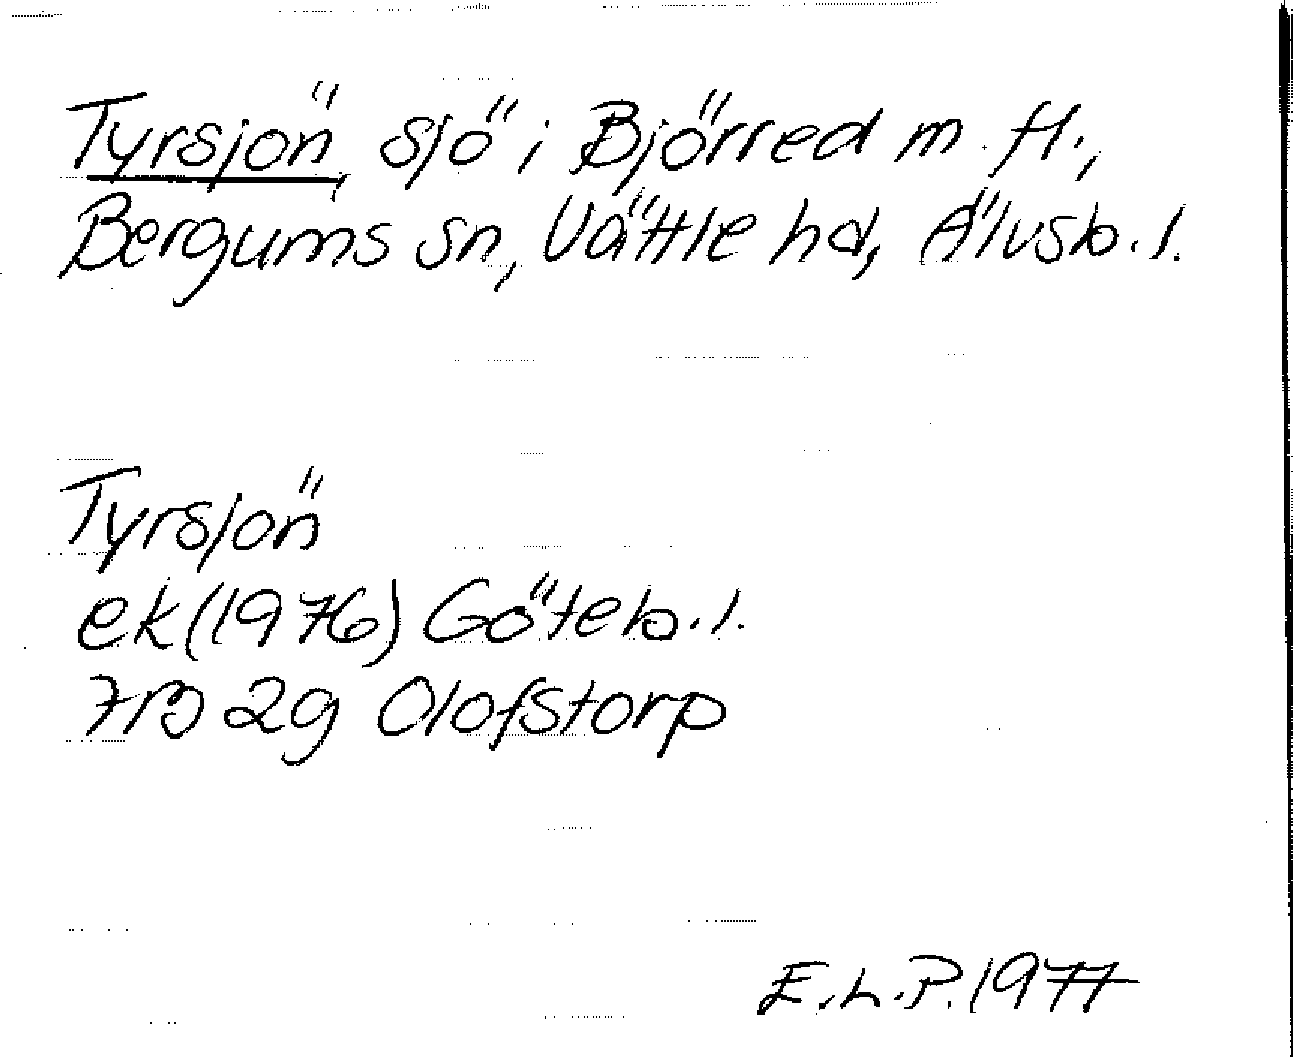 Tyrsjön, sjö i Björred m. fl.,
Bergums sn, Vättle hd, Älvsb. l.
Tyrsjön
ek (1976) Göteb. l.
7B 2g Olofstorp
E.L.P. 1977